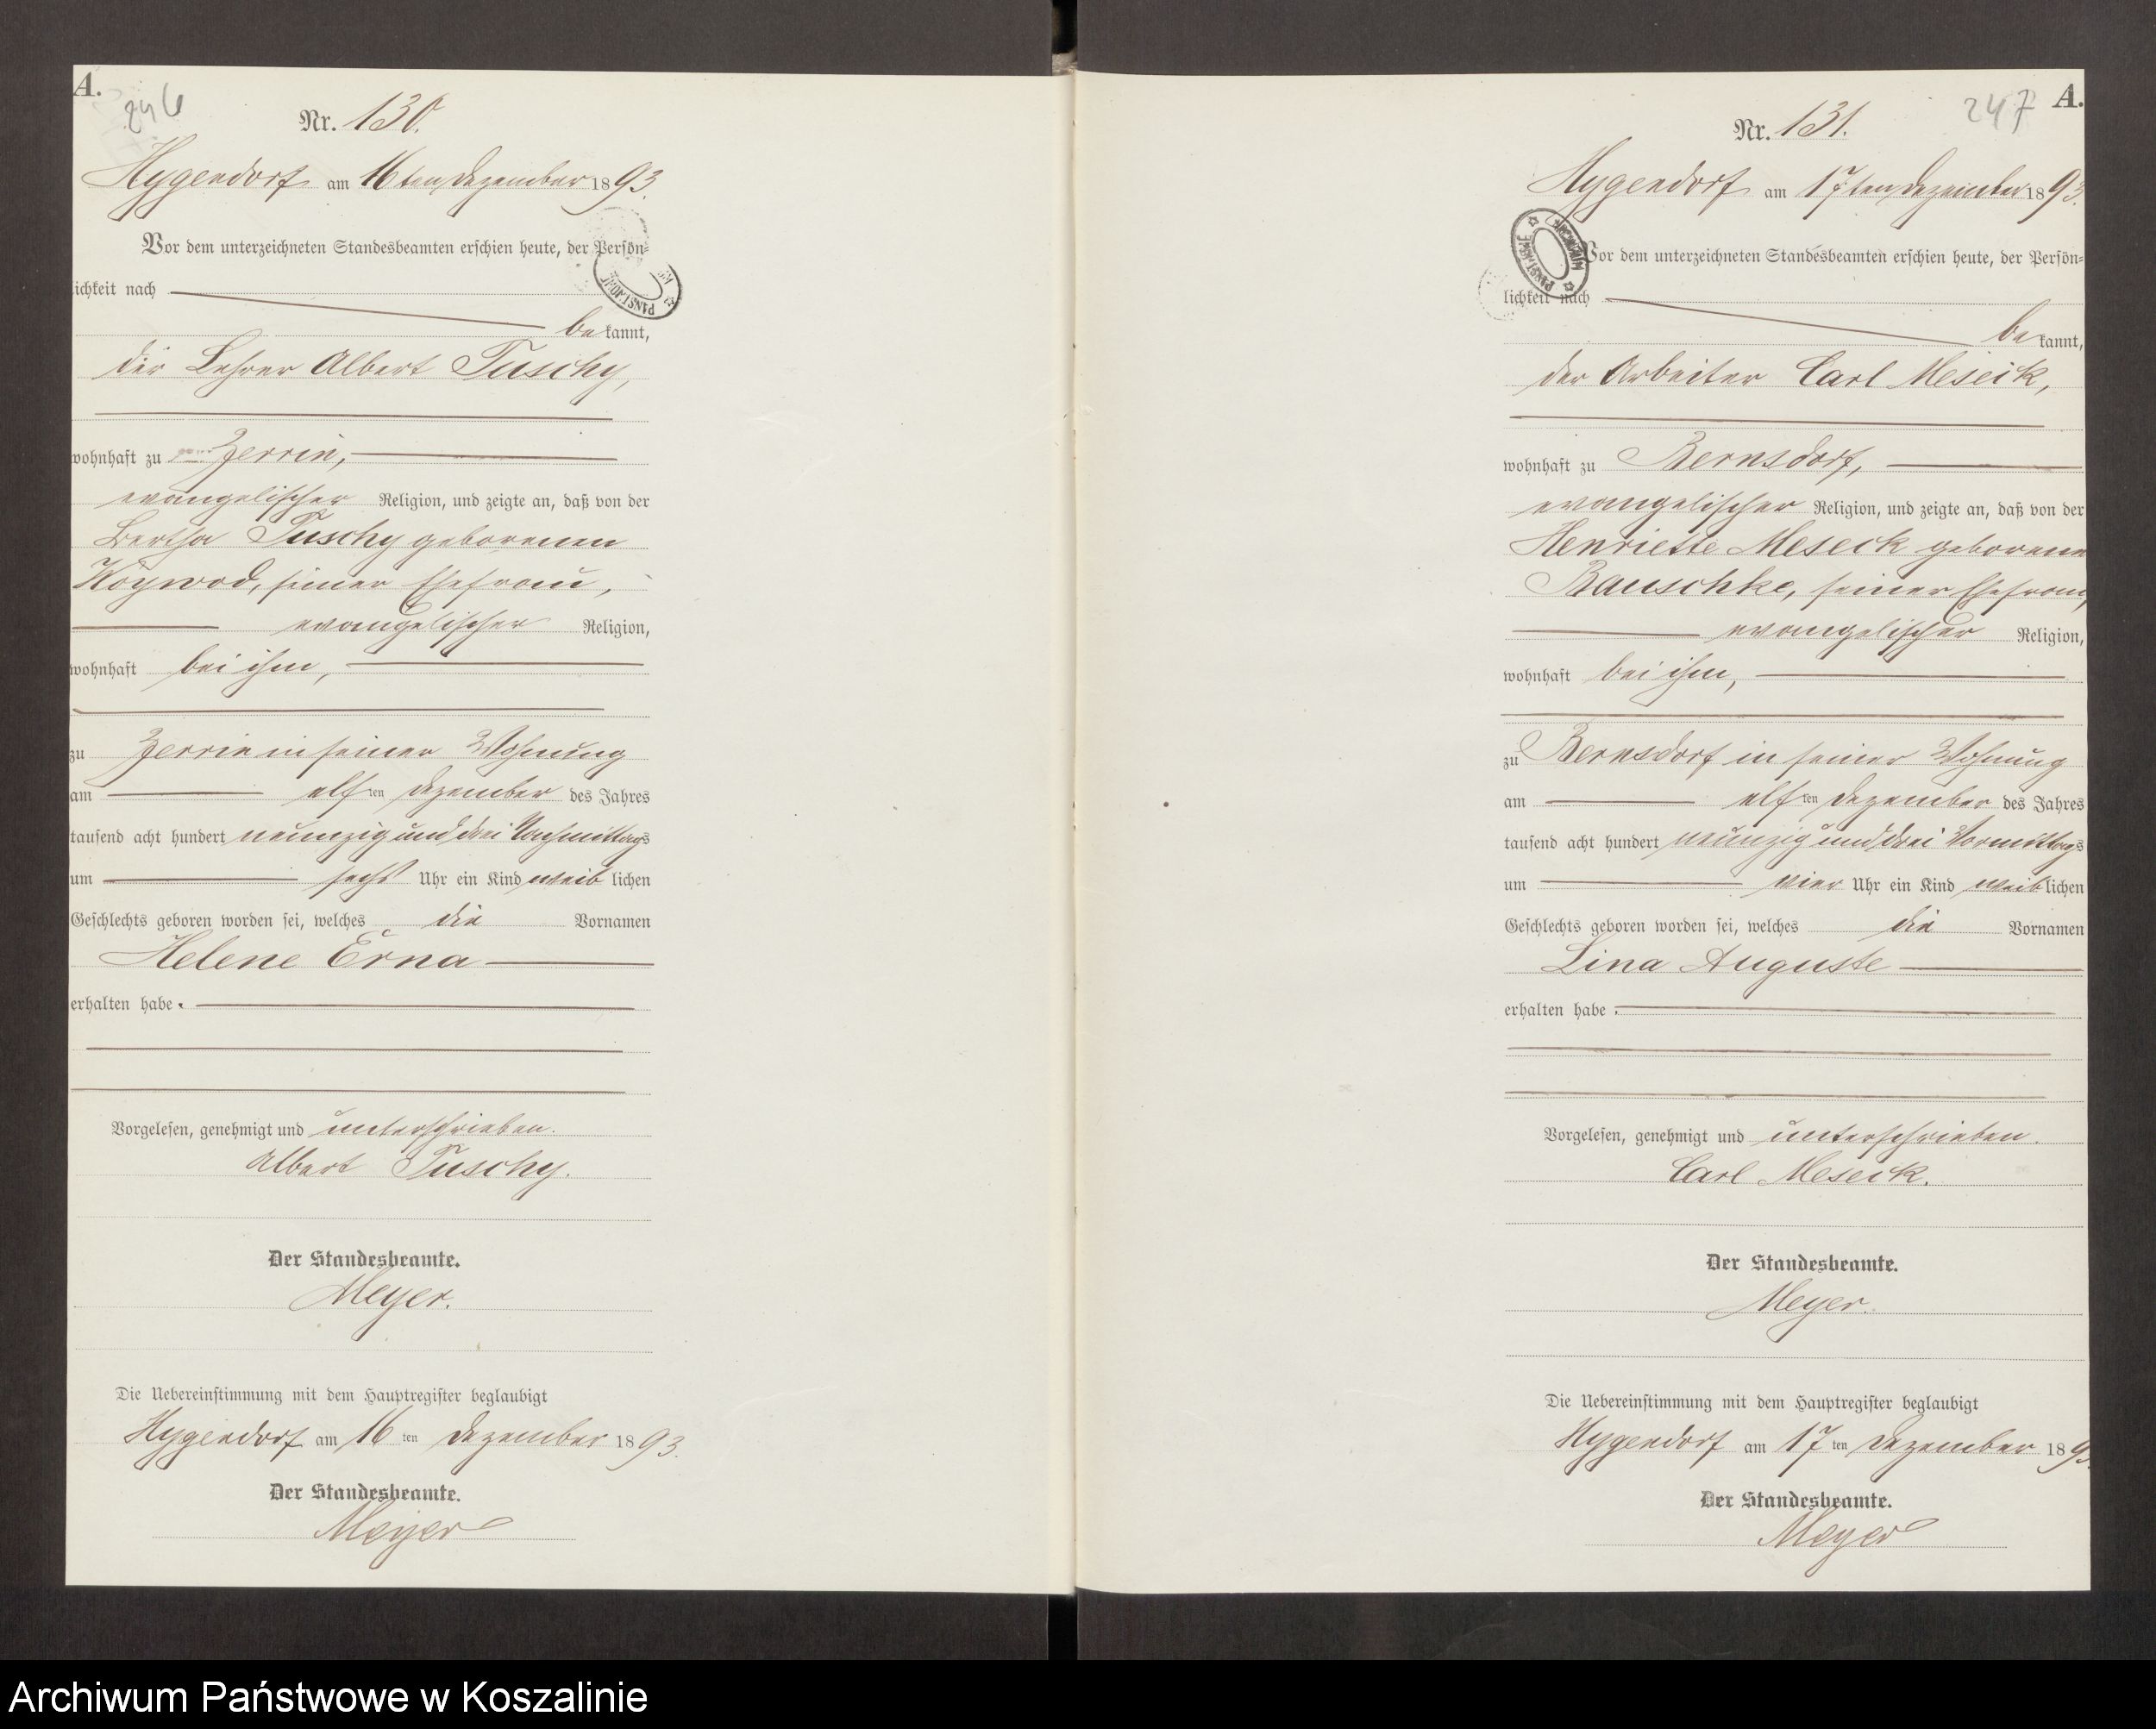 A.
246
Nr. 130.
Hygendorf am 16ten Dezember 1893.
Vor dem unterzeichneten Standesbeamten erschien heute, der Persön=
lichkeit nach
be kannt,
der Lehrer Albert Tuschy,
wohnhaft zu Zerrin,
evangelischer Religion, und zeigte an, daß von der
Bertha Tuschy geborenen
seiner Ehefrau,
evangelischer Religion,
wohnhaft bei ihm,
zu Zerrin in seiner Wohnung
am elf ten Dezember des Jahres
tausend acht hundert neunzig und drei Nachmittags
um sechs Uhr ein Kind weib lichen
Geschlechts geboren worden sei, welches die Vornamen
Helene Erna
erhalten habe.
Vorgelesen, genehmigt und unterschrieben.
Albert Tuschy.
Der Standesbeamte.
Meyer.
Die Uebereinstimmung mit dem Hauptregister beglaubigt
Hygendorf am 16 ten Dezember 1893.
Der Standesbeamte.
Meyer
247
A.
Nr. 131.
Hygendorf am 17ten Dezember 1893.
Vor dem unterzeichneten Standesbeamten erschien heute, der Persön=
lichkeit nach
be kannt,
der Arbeiter Carl Meseck,
wohnhaft zu Bernsdorf,
evangelischer Religion, und zeigte an, daß von der
Henriette Meseck geborene
Bauschke, seiner Ehefrau,
evangelischer Religion,
wohnhaft bei ihm,
zu Bernsdorf in seiner Wohnung
am elf ten Dezember des Jahres
tausend acht hundert neunzig und drei Vormittags
um vier Uhr ein Kind weib lichen
Geschlechts geboren worden sei, welches die Vornamen
Lina Auguste
erhalten habe.
Vorgelesen, genehmigt und unterschrieben.
Carl Meseck.
Der Standesbeamte.
Meyer.
Die Uebereinstimmung mit dem Hauptregister beglaubigt
Hygendorf am 17 ten Dezember 189
Der Standesbeamte.
Meyer
Archiwum Państwowe w Koszalinie